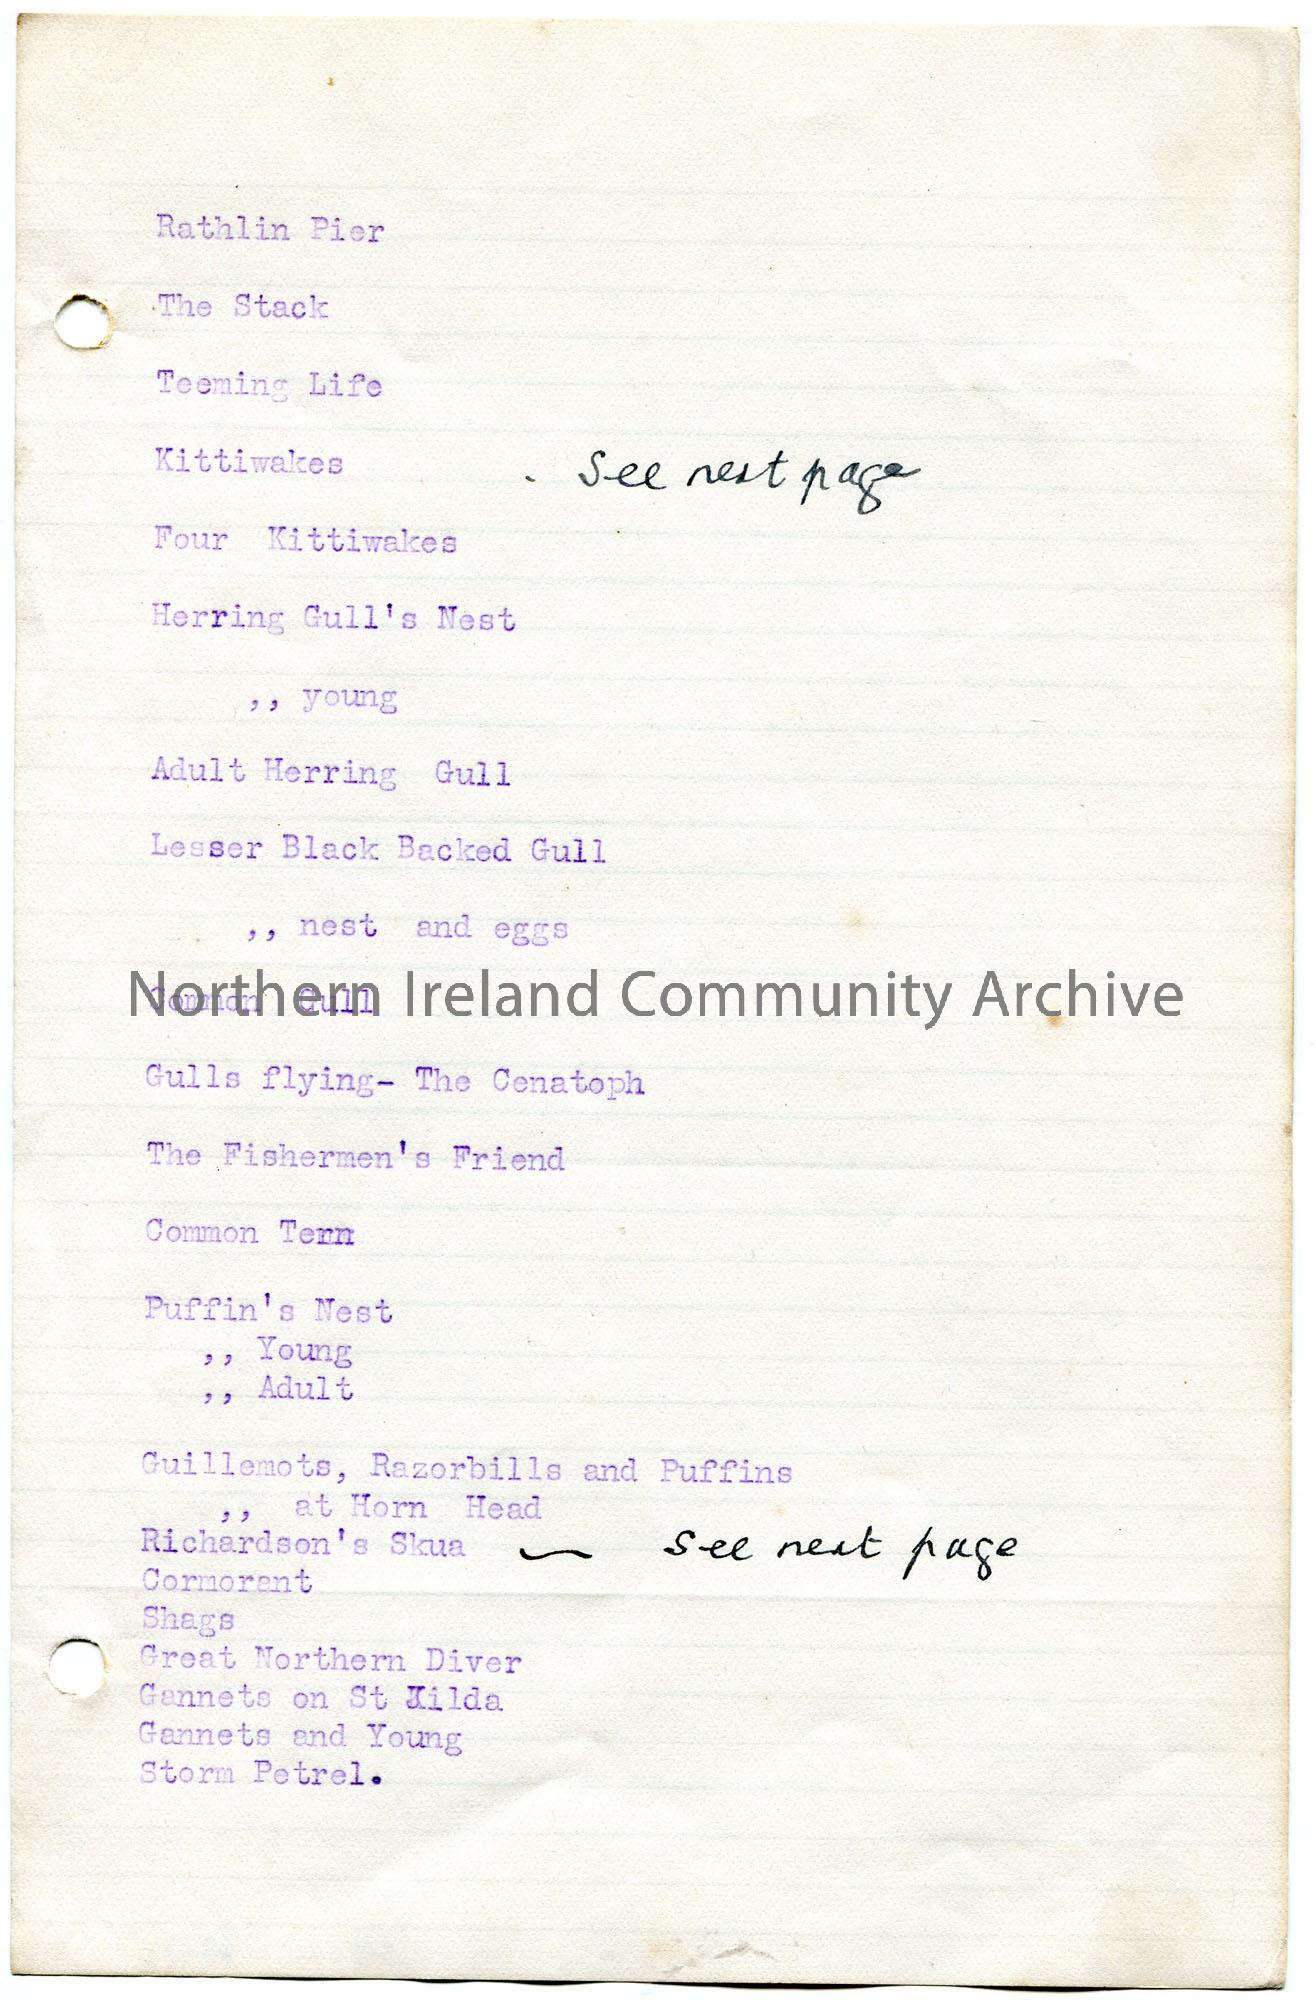 Rathlin Pier
The Stack
Teeming Life
Kittiwakes . See next page
Four Kittiwakes
Herring Gull's Nest
,, young
Adult Herring Gull
Lesser Black Backed Gull
,, nest and eggs
Northern Ireland Community Archive
Common Gull
Gulls flying- The Cenatoph
The Fishermen's Friend
Common Tern
Puffin's Nest
,, Young
,, Adult
Guillemots, Razorbills and Puffins
,, at Horn Head
Richardson's Skua — See next page
Cormorant
Shags
Great Northern Diver
Gannets on St Kilda
Gannets and Young
Storm Petrel.